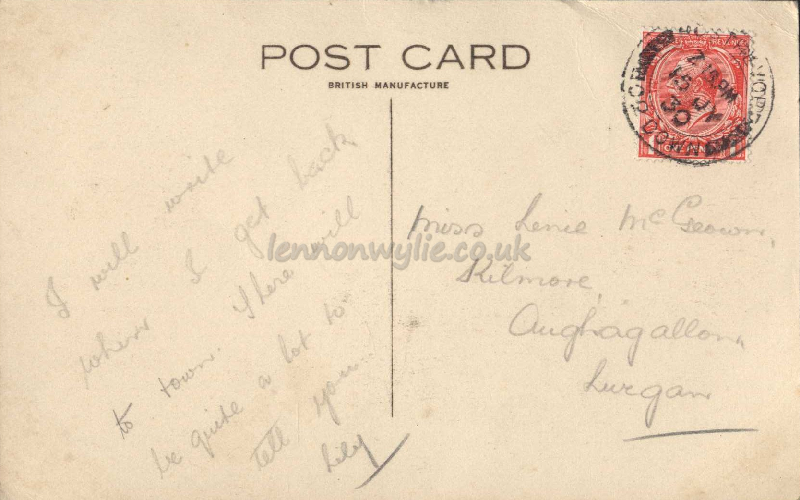 POST CARD
BRITISH MANUFACTURE
I will write
when I get back
to town. There will
be quite a lot to
tell you.
Lily
Miss Lenie McGeown,
Kilmore,
Aughagallon,
Lurgan
lennonwylie.co.uk
REVENUE
ONE PENNY
18 JY
30
CO. DOWN